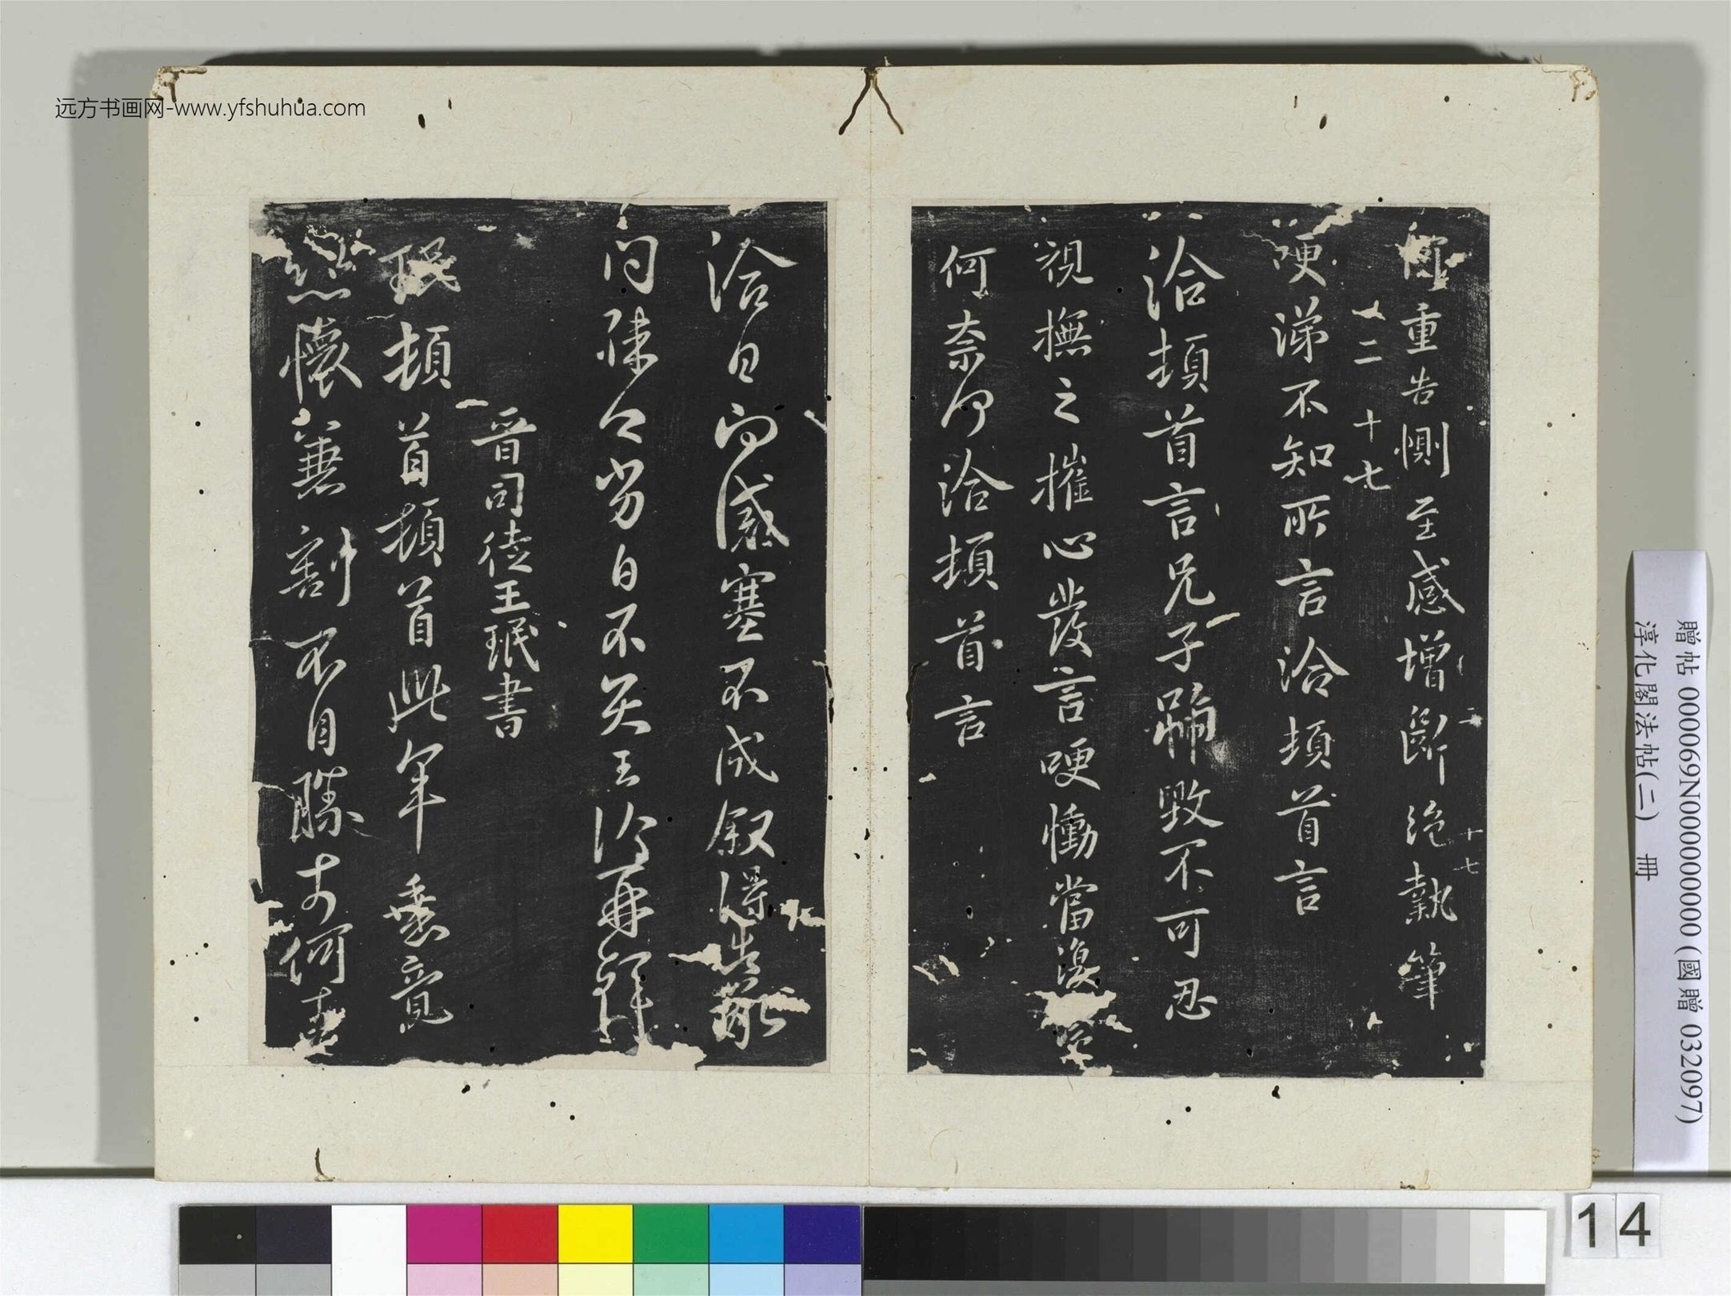 重告惻至感增斷絕執筆
二 十七
哽涕不知所言洽頓首言
洽頓首言兄子號毀不可忍
視撫之摧心發言哽慟當復奈
何奈何洽頓首言
二 十七
洽白感塞不成叙得告慰
向疎之劣白不具王洽再拜
晉司徒王珉書
珉頓首頓首此年垂竟
懷兼割不自勝奈何奈
贈帖 000069N000000000 (國贈 032097)
淳化閣法帖(二) 冊
14
远方书画网-www.yfshuhua.com